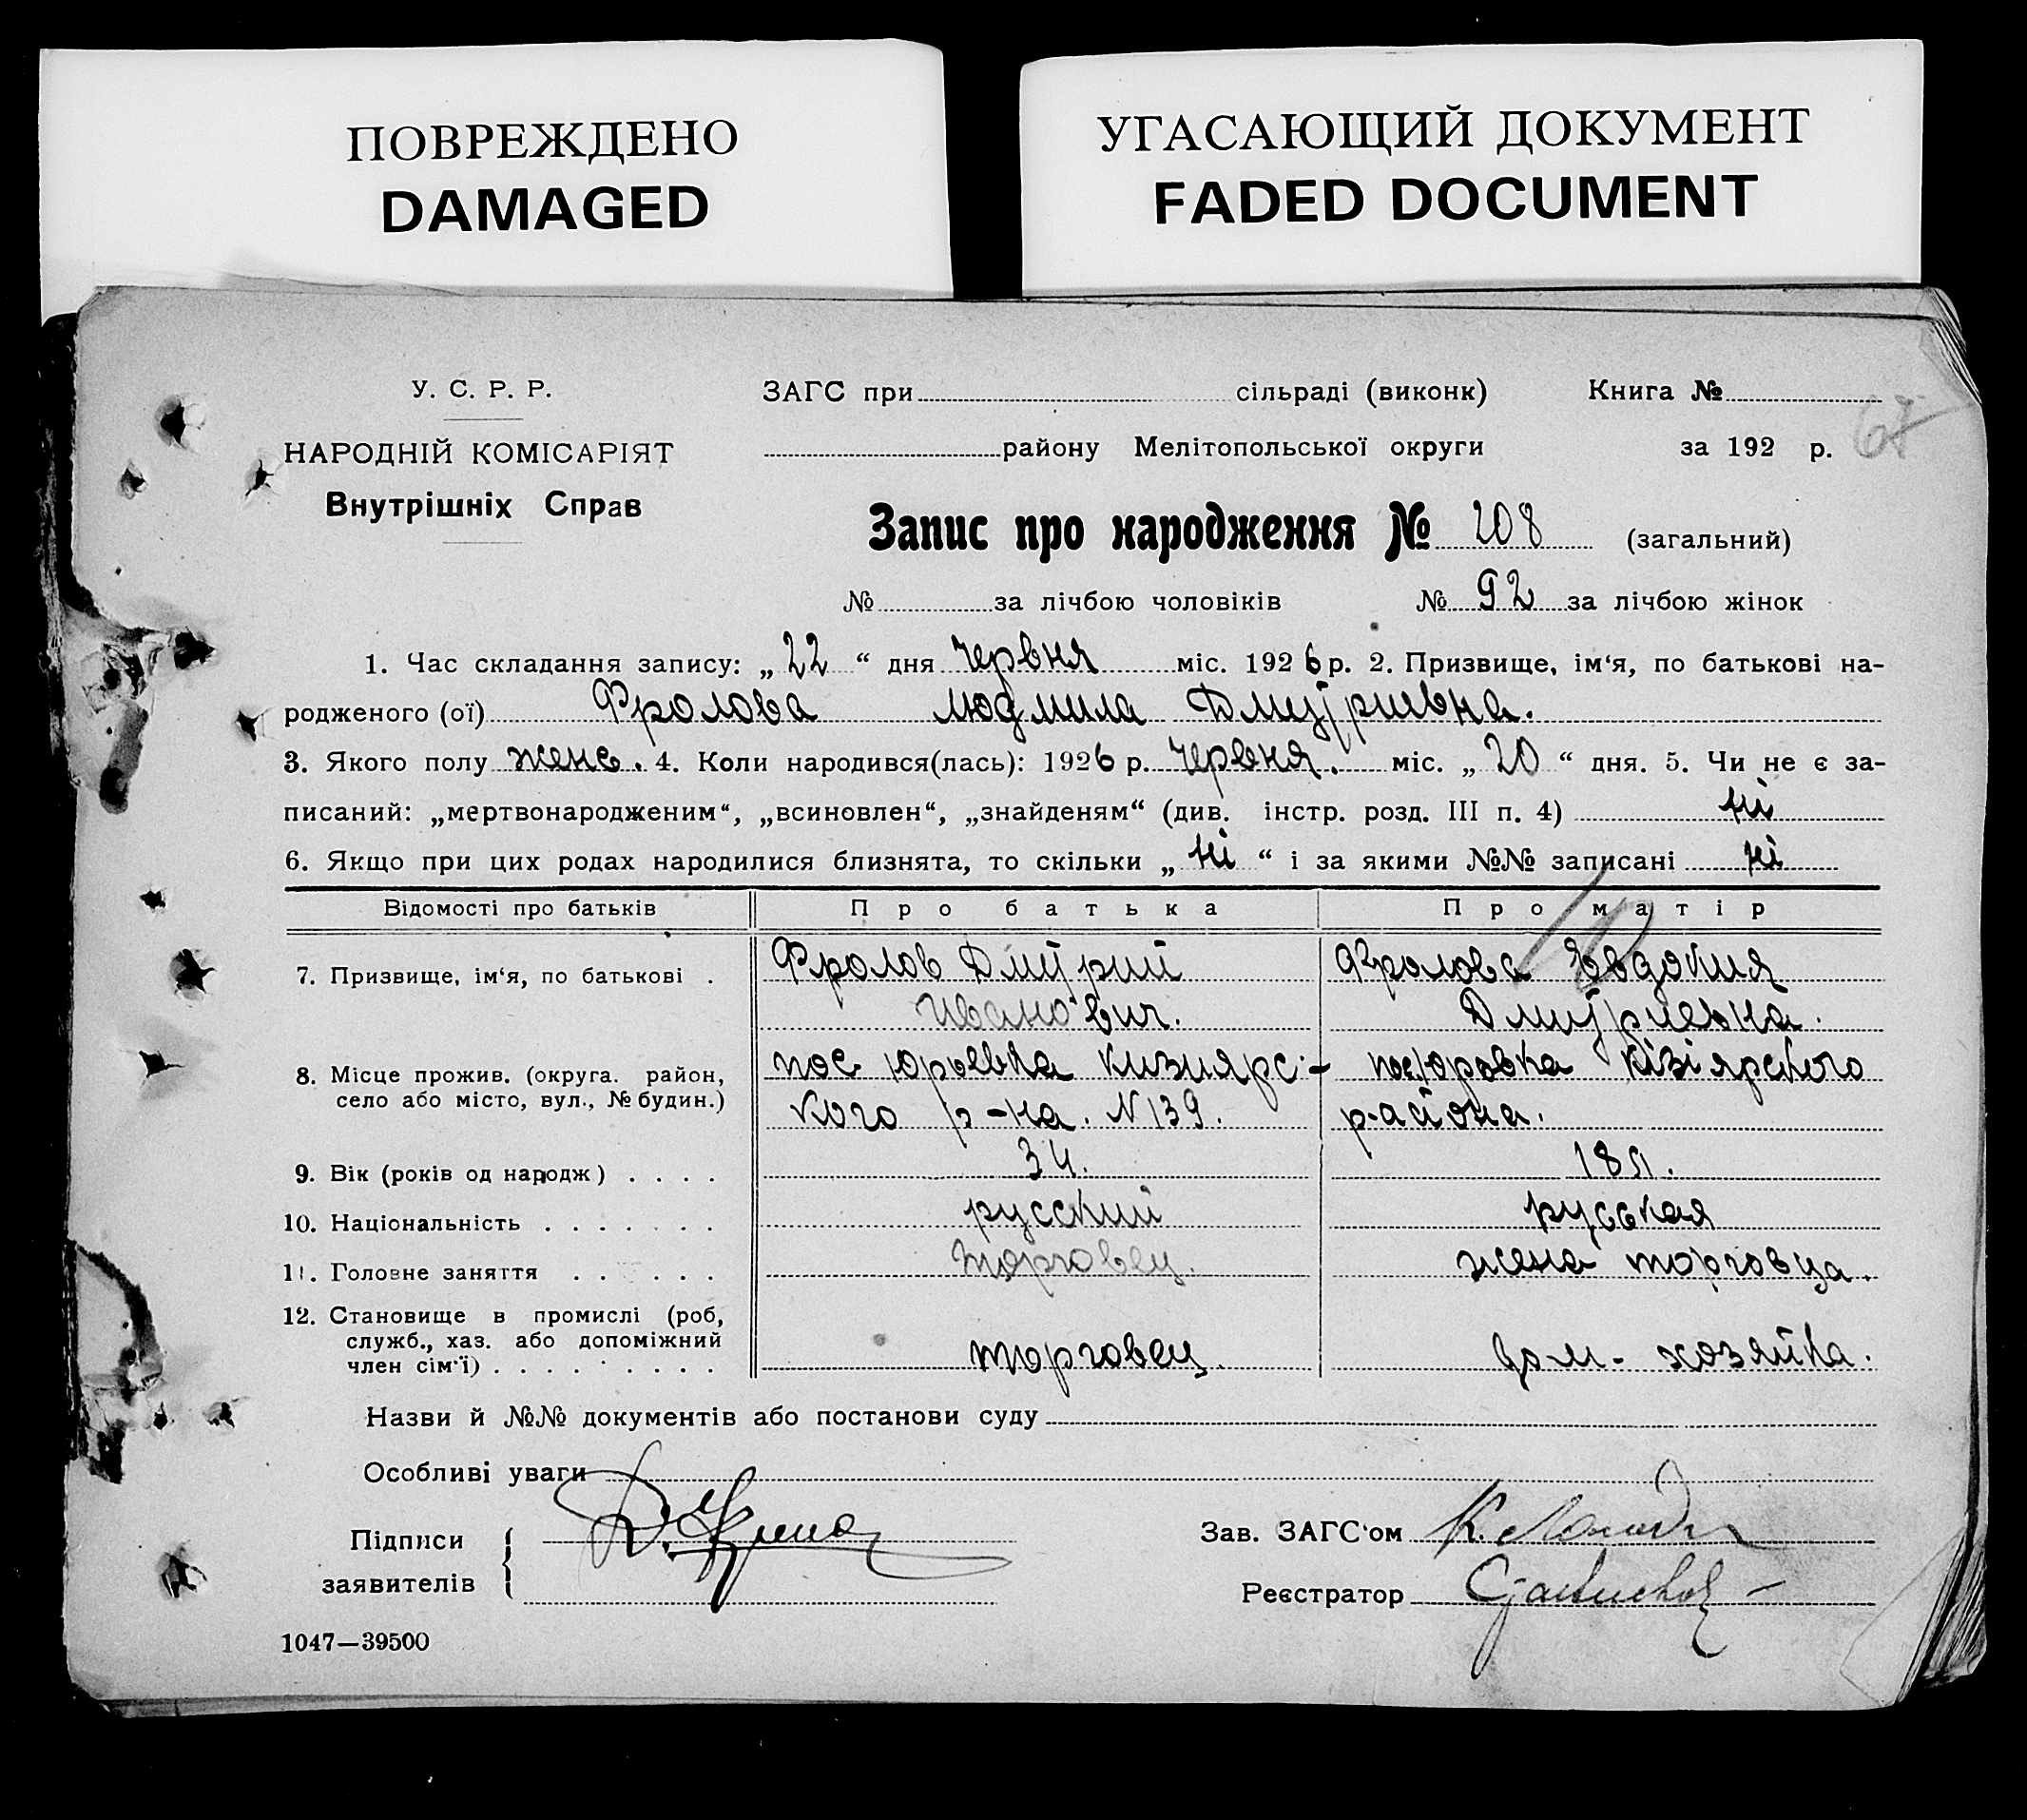 ПОВРЕЖДЕНО
DAMAGED
УГАСАЮЩИЙ ДОКУМЕНТ
FADED DOCUMENT
У. С. Р. Р.
НАРОДНІЙ КОМІСАРІЯТ
Внутрішніх Справ
ЗАГС при сільраді (виконк) Книга №
67
району Мелітопольської округи за 192 р.
Запис про народження № 208 (загальний)
№ за лічбою чоловіків № 92 за лічбою жінок
1. Час складання запису: „ 22 “ дня червня міс. 1926 р. 2. Призвище, ім‘я, по батькові на-
родженого (ої) Фролова Людмила Дмитриевна.
3. Якого полу женс. 4. Коли народився(лась): 1926 р. червня. міс. „ 20 “ дня. 5. Чи не є за-
писаний: „мертвонародженим“, „всиновлен“, „знайденям“ (див. інстр. розд. III п. 4) ні
6. Якщо при цих родах народилися близнята, то скільки „ ні “ і за якими №№ записані ні
Відомості про батьків Про батька Про матір
7. Призвище, ім‘я, по батькові . Фролов Дмитрий Фролова Евдокия
Иванович. Дмитриевна.
8. Місце прожив. (округа. район, пос Юрьевка Кизиярс- пос Юровка Кізіярского
село або місто, вул., № будин.) кого р-на. N 139. района.
9. Вік (років од народж) . . . . 34.
10. Національність . . . . . . . русский русская
11. Головне заняття . . . . . . торговец. жена торговца.
12. Становище в промислі (роб,
служб., хаз. або допоміжний
член сім‘ї) . . . . . . . . . торговец. дом- хозяйка.
Назви й №№ документів або постанови суду
Особливі уваги
Підписи
заявителів
Зав. ЗАГС‘ом К.
Реєстратор
1047—39500